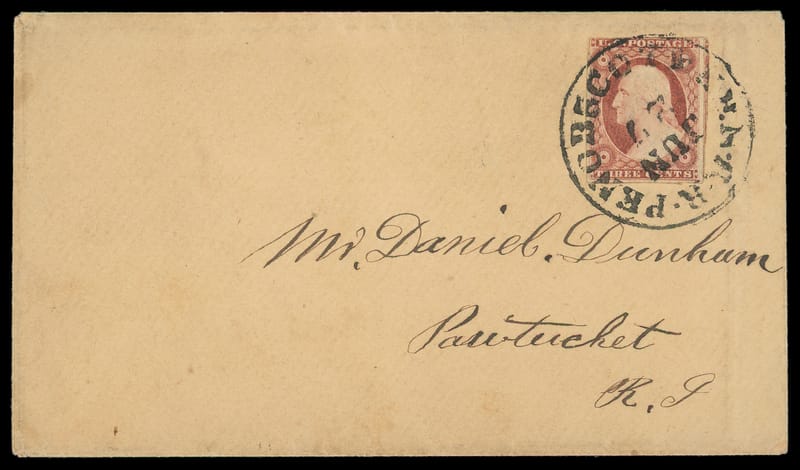 U.S. POSTAGE
THREE CENTS
PENOBSCOT
JUN
Mr. Daniel. Dunham
Pawtucket
R. I